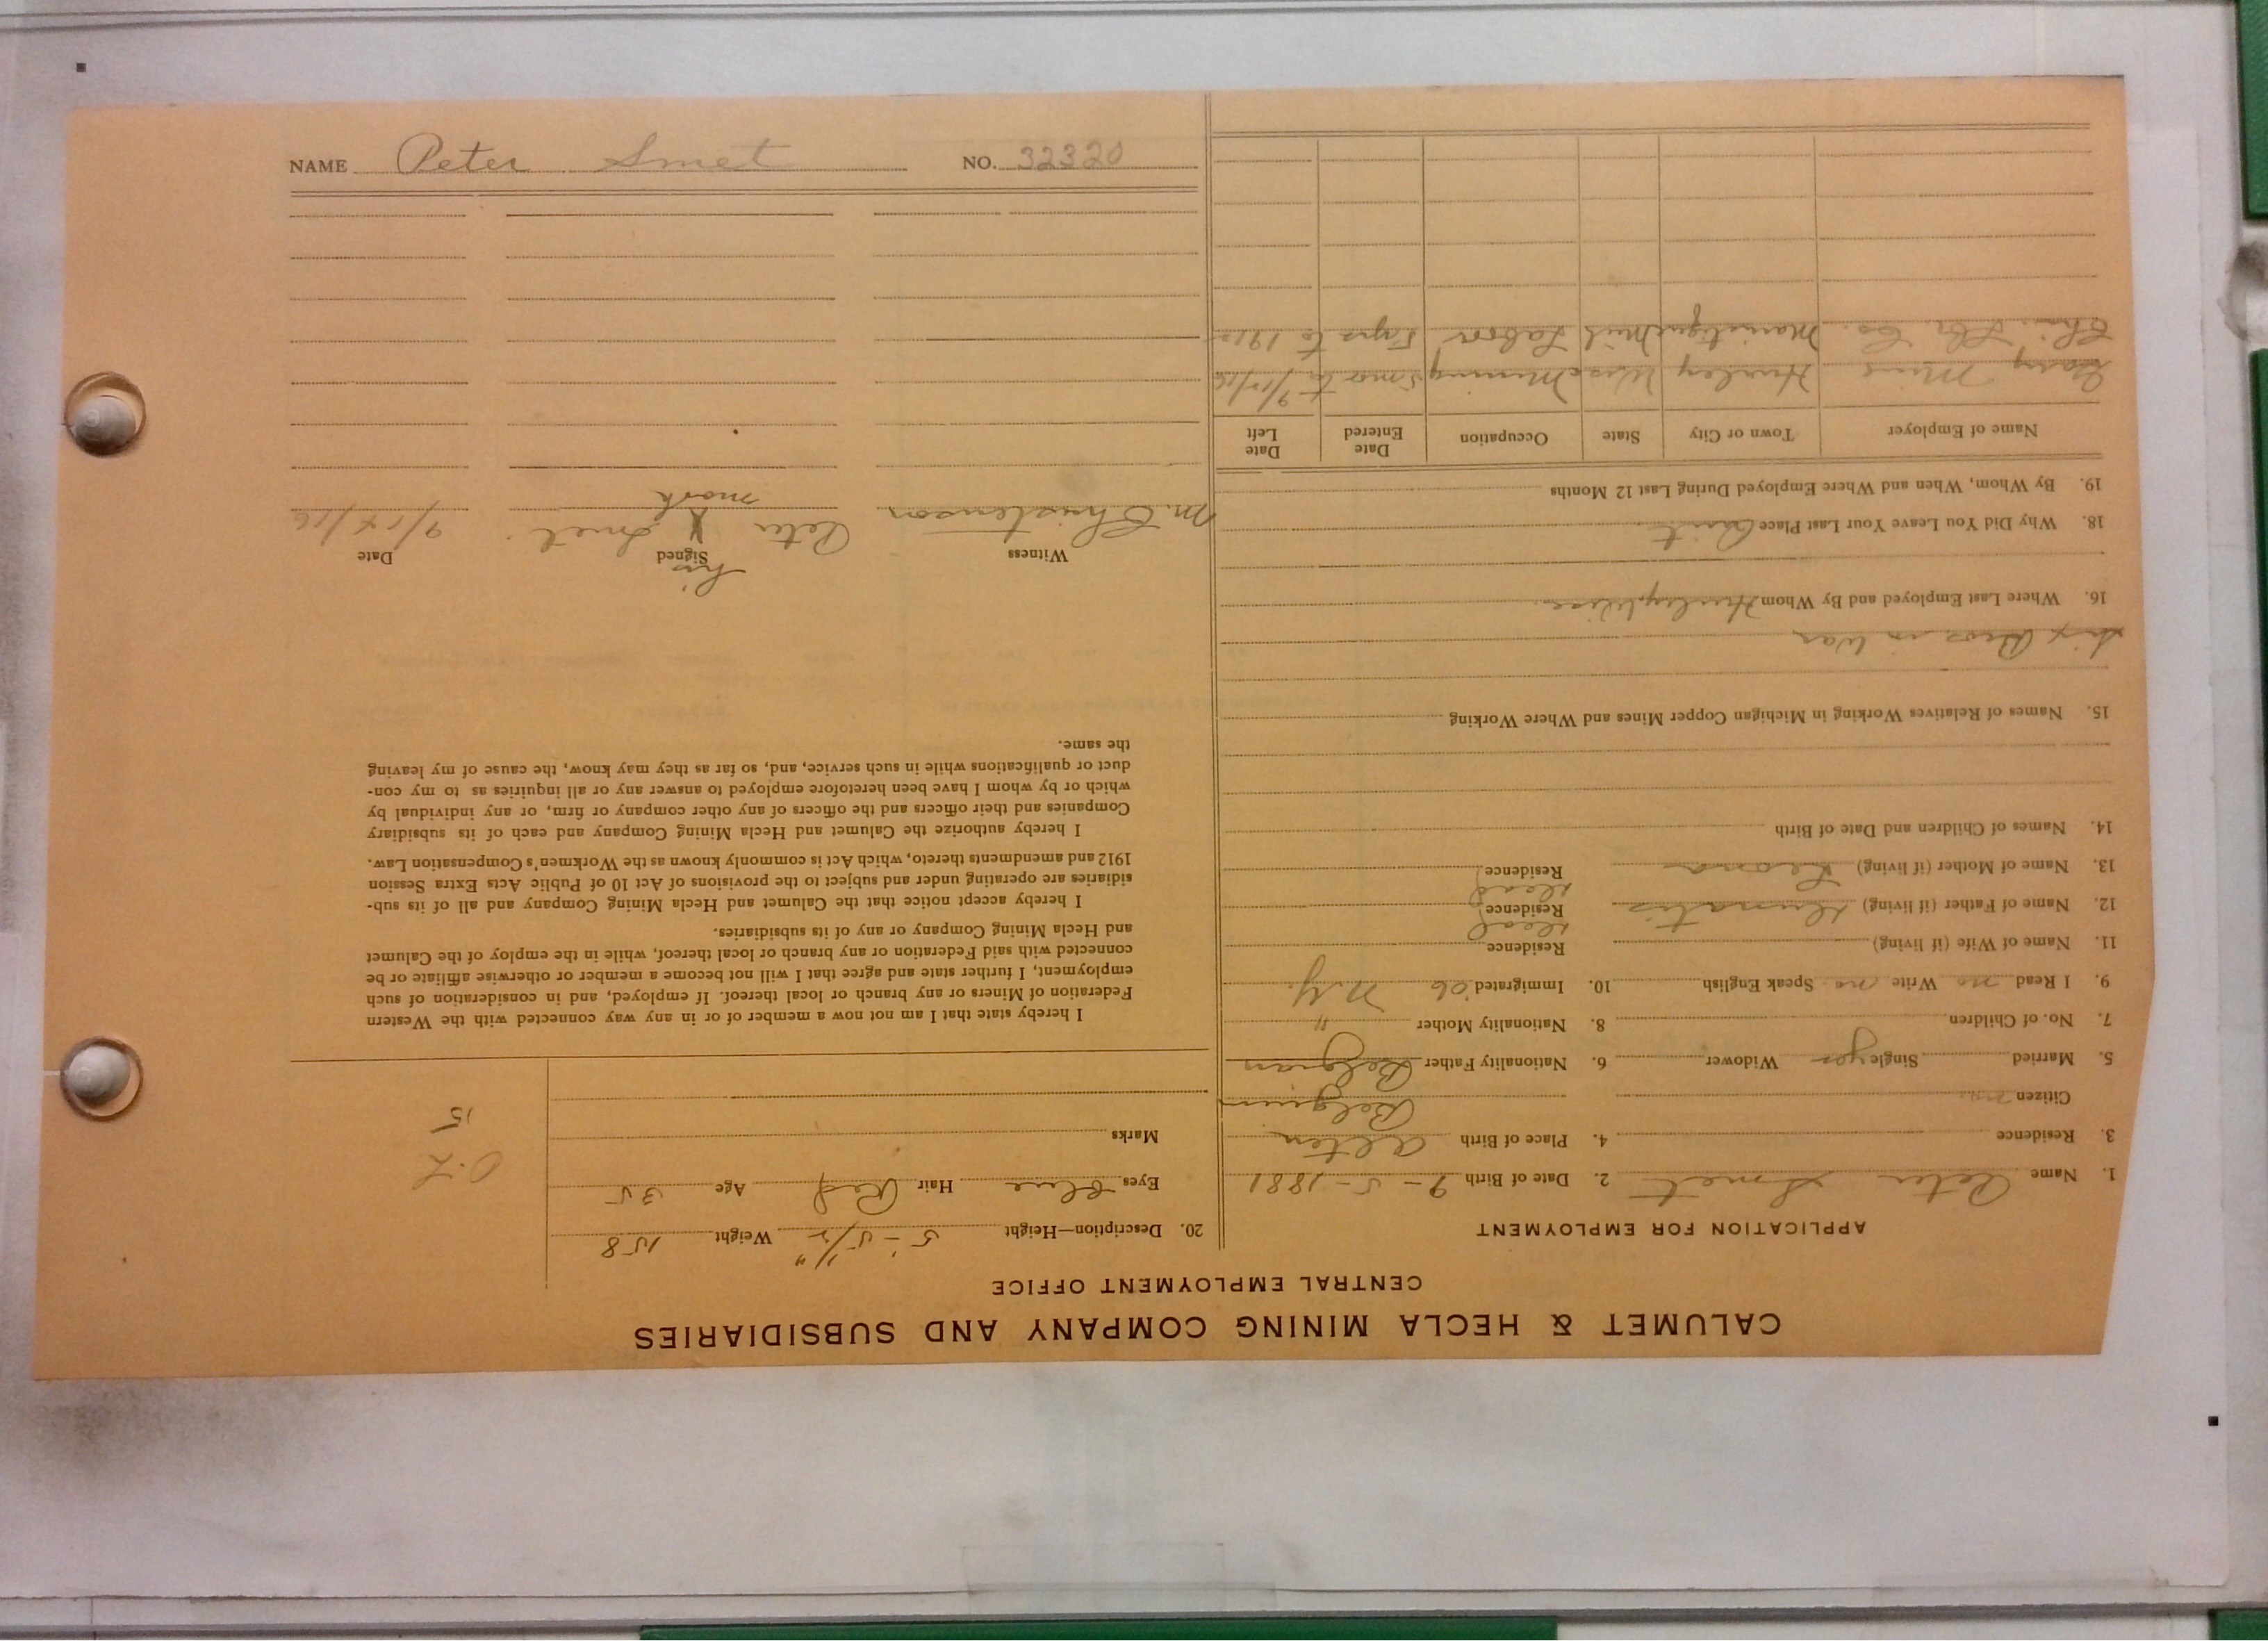 NAME Peter Smet NO. 32320
CALUMET & HECLA MINING COMPANY AND SUBSIDIARIES
CENTRAL EMPLOYMENT OFFICE
APPLICATION FOR EMPLOYMENT
1. Name Peter Smet 2. Date of Birth 9-5-1881
3. Residence 4. Place of Birth
Citizen no Belgium
5. Married Single yes Widower 6. Nationality Father Belgian
7. No. of Children 8. Nationality Mother "
9. I Read no Write no Speak English 10. Immigrated '06 N.Y.
11. Name of Wife (if living) Residence
12. Name of Father (if living) Residence dead
13. Name of Mother (if living) Leona Residence dead
14. Names of Children and Date of Birth
15. Names of Relatives Working in Michigan Copper Mines and Where Working
six Bros in War
16. Where Last Employed and By Whom Hurley, Wisc.
18. Why Did You Leave Your Last Place Quit
19. By Whom, When and Where Employed During Last 12 Months
Name of Employer Town or City State Occupation Date Entered Date Left
Mine Hurley Wisc Mining 5 mo to 9/12/16
Chi. Lbr Co. Manistique Mich Labor 5 yrs to
20. Description—Height 5'-5 1/2" Weight 158
Eyes Blue Hair Red Age 35
Marks
O.K.
15
I hereby state that I am not now a member of or in any way connected with the Western
Federation of Miners or any branch or local thereof. If employed, and in consideration of such
employment, I further state and agree that I will not become a member or otherwise affiliate or be
connected with said Federation or any branch or local thereof, while in the employ of the Calumet
and Hecla Mining Company or any of its subsidiaries.
I hereby accept notice that the Calumet and Hecla Mining Company and all of its sub-
sidiaries are operating under and subject to the provisions of Act 10 of Public Acts Extra Session
1912 and amendments thereto, which Act is commonly known as the Workmen's Compensation Law.
I hereby authorize the Calumet and Hecla Mining Company and each of its subsidiary
Companies and their officers and the officers of any other company or firm, or any individual by
which or by whom I have been heretofore employed to answer any or all inquiries as to my con-
duct or qualifications while in such service, and, so far as they may know, the cause of my leaving
the same.
Witness Signed Date
his
M. Christenson Peter X Smet 9/14/16
mark